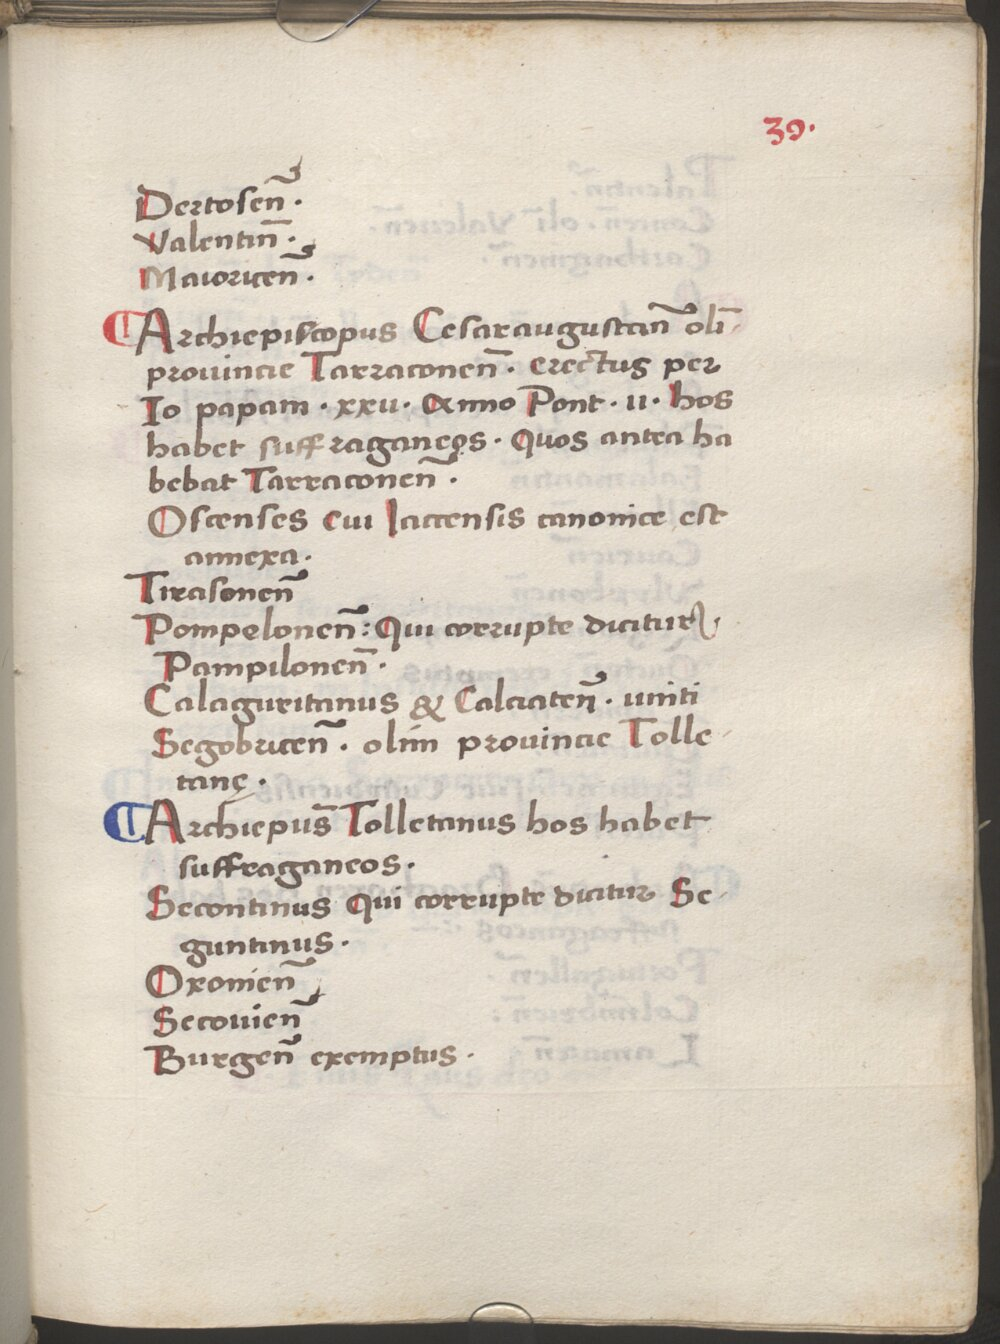 39.
Dertosen̄.
Valentin̄.
Maioricen̄.
¶Archiepiscopus Cesaraugustan̄ oli-
prouincie Tarraconen̄. erectus per
Io papam. xxii. Anno Pont. ii. hos
habet suffraganeos. Quos antea ha
bebat Tarraconen̄.
Oscenses cui Iaccensis canonice est
annexa.
Tirasonen̄
Pompelonen̄: Qui corrupte dicitur
Pampilonen̄.
Calaguritanus & Calciaten̄. uniti
Segobricen̄. olim prouincie Tolle-
tanę.
¶Archiepus̄ Tolletanus hos habet
suffraganeos.
Secontinus qui corrupte dicitur Se-
guntinus.
Oxonien̄
Secouien̄
Burgen̄ exemptus.